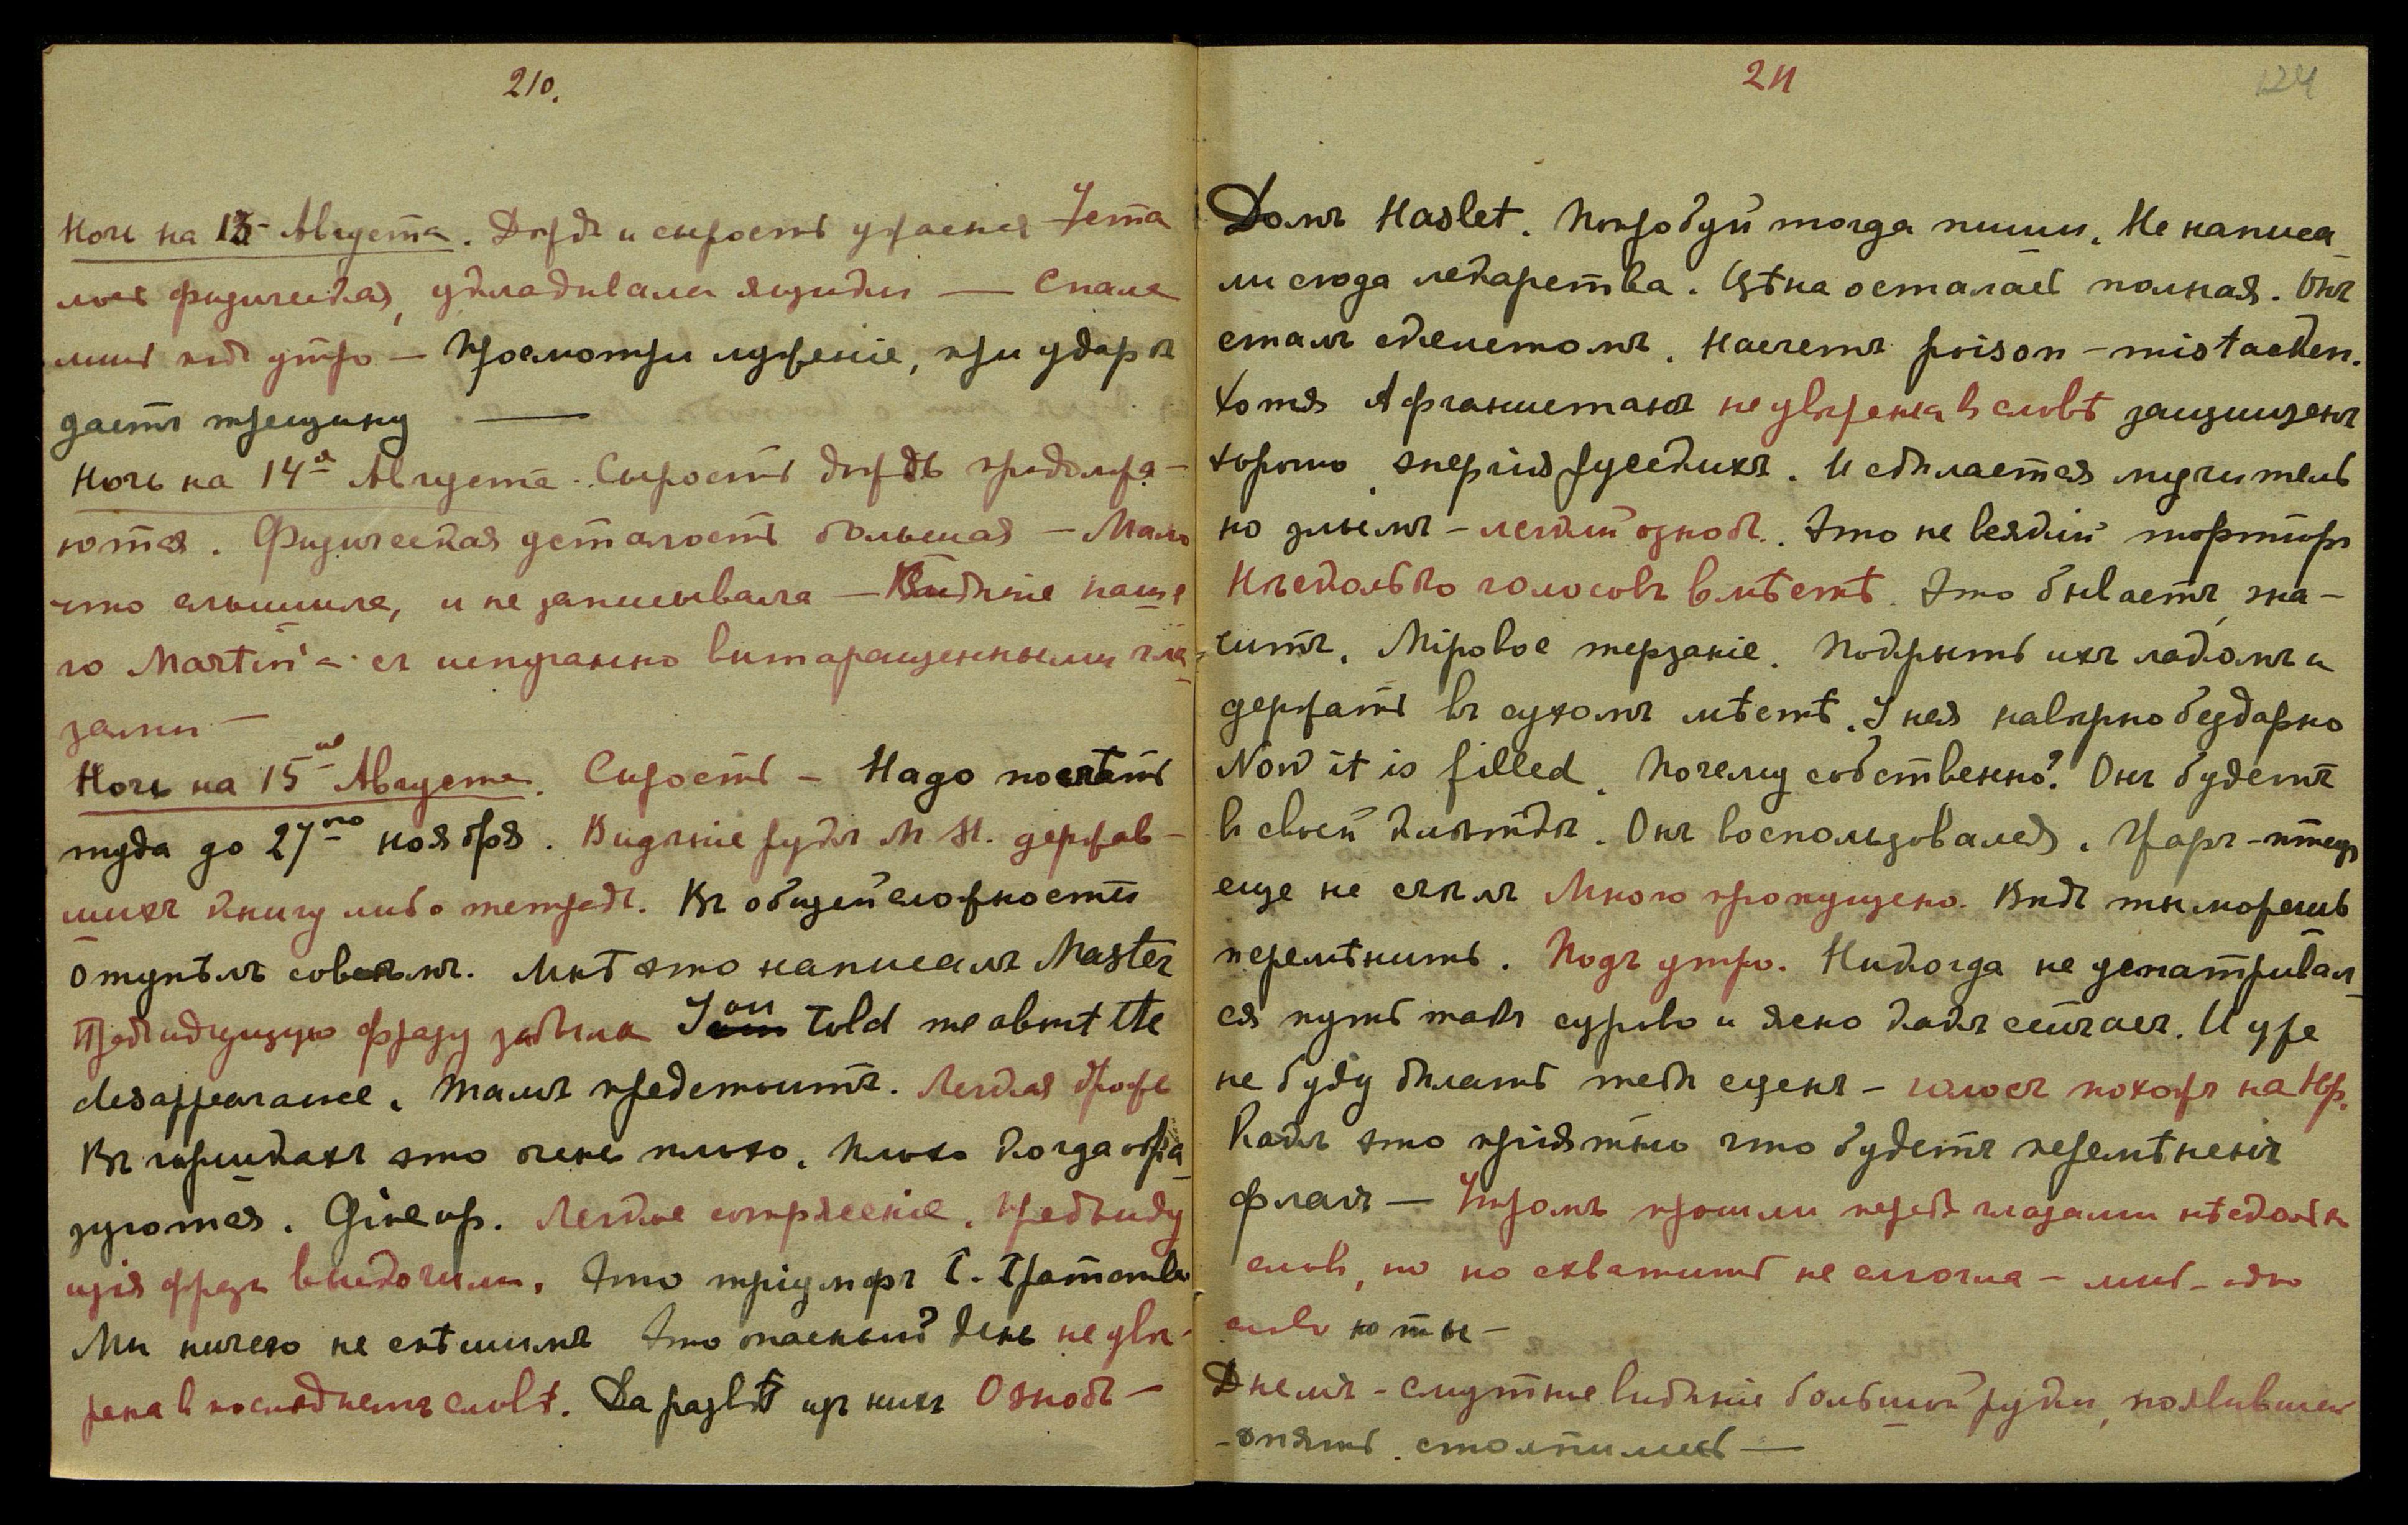 210.
Ночь на 13 Августа. Дождь и сырость ужасная Уста
лость физическая, укладывала ящики — Спала
лишь под утро — Просмотри лужение, при ударѣ
даетъ трещину —
Ночь на 14ое Августа. Сырость дождь продолжа-
ются. Физическая усталость большая — Мало
что слышила, и не записывала — Видѣніе наше
го Martin'а съ испуганно вытаращенными гла
зами —
Ночь на 15ое Августа. Сырость — Надо поспѣть
туда до 27го ноября. Видѣніе рукъ М. Н. держав-
шихъ книгу либо тетрадь. Въ общей сложности
отупѣлъ совсѣмъ. Мнѣ это написалъ Master
Предыдущую фразу забыла You told me about the
desappearance. Тамъ предстоитъ. Легкая дрожь
Въ горшкахъ это очень плохо. Плохо когда обра
зуются. Give up. Легкое сотрясеніе. Предыду
щія фразы выскочили. Это тріумфъ С. Братства
Мы ничего не спѣшимъ Это опасный? день не увѣ-
рена въ послѣднемъ словѣ. Да развѣ изъ нихъ Ознобъ —
211
124
Домъ Haslet. Попробуй тогда пиши. Не написа
ли сюда лекарства. Цѣна осталась полная. Онъ
сталъ скелетомъ. Насчетъ poison - mistacken.
Хотя Афганистанъ не увѣрена въ словѣ защищенъ
хорошо. энергія русскихъ. И сдѣлается мучитель
но злымъ - легкій ознобъ. Это не всякій
Нѣсколько голосовъ вмѣстѣ. Это бываетъ, зна-
читъ. Міровое терзаніе. Покрыть ихъ лакомъ и
держать въ сухомъ мѣстѣ. У нея навѣрно бездарно
Now it is filled. Почему собственно? Онъ будетъ
въ своей клѣткѣ. Онъ воспользовался. Жаръ-птицу
еще не съѣлъ Много пропущено. Видъ ты можешь
перемѣнить. Подъ утро. Никогда не усматривал
ся путь такъ сурово и ясно какъ сейчасъ. И уже
не буду дѣлать тебѣ сценъ - голосъ похожъ на Юр.
Какъ это пріятно что будетъ перемѣненъ
флагъ — Утромъ прошли передъ глазами нѣсколько
словъ, но схватить не смогла - лишь одно
слово но ты —
Днемъ - смутное видѣніе большой руки, появившей
- опять. столпились —